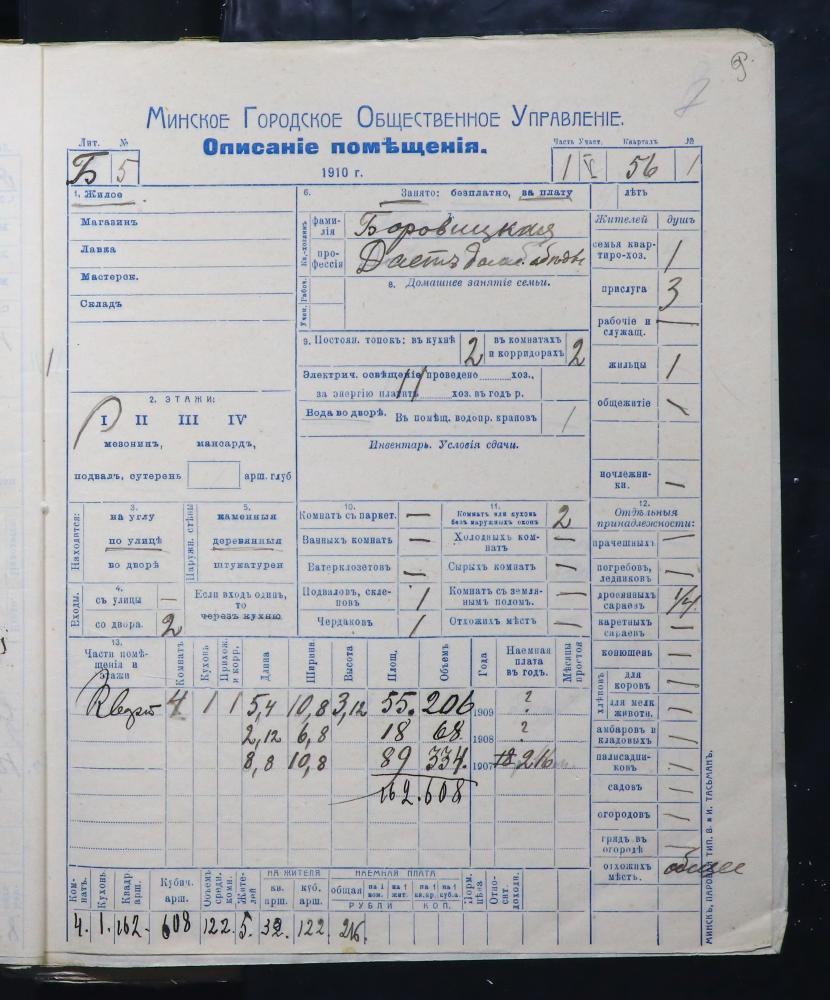 9.
Минское Городское Общественное Управленіе.
Описаніе помѣщенія.
1910 г.
Лит. №
Б 5
Часть Участ. Кварталъ №
1 V 56 1
1. Жилое
Магазинъ
Лавка
Мастерск.
Складъ
6. Занято: безплатно, за плату лѣтъ
Кв.-хозяинъ
фами-
лія
Боровицкая
про-
фессія
Учен. Рабоч.
в. Домашнее занятіе семьи.
9. Постоян. топокъ: въ кухнѣ 2 въ комнатахъ и корридорахъ 2
Электрич. освѣщеніе проведено хоз.,
за энергію платитъ хоз. въ годъ р.
Вода во дворѣ. Въ помѣщ. водопр. крановъ /
Инвентарь. Условія сдачи.
2. ЭТАЖИ:
I II III IV
мезонинъ, мансардъ,
подвалъ, сутерень арш. глуб
Находится:
3.
на углу
по улицѣ
во дворѣ
Наружн. стѣны
5.
каменныя
деревянныя
штукатурен
Входы:
4.
съ улицы —
со двора. 2
Если входъ одинъ,
то
черезъ кухню
10.
Комнатъ съ паркет. —
Ванныхъ комнатъ —
Ватерклозетовъ —
Подваловъ, скле-
повъ 1
Чердаковъ 1
11.
Комнатъ или кухонь
безъ наружныхъ оконъ 2
Холодныхъ ком-
натъ —
Сырыхъ комнатъ —
Комнатъ съ земля-
нымъ поломъ. —
Отхожихъ мѣстъ —
Жителей душъ
семья квар-
тиро-хоз. 1
прислуга 3
рабочіе и
служащ. —
жильцы 1
общежитіе —
ночлежни-
ки. —
12.
Отдѣльныя
принадлежности:
прачешныхъ —
погребовъ,
ледниковъ —
дровяныхъ
сараевъ 1/4
каретныхъ
сараевъ —
конюшень —
хлѣвовъ
для
коровъ —
для мелк
животн. —
амбаровъ и
кладовыхъ —
палисадни-
ковъ —
садовъ —
огородовъ —
грядъ въ
огородѣ —
отхожихъ
мѣстъ. общее
13.
Части помѣ-
щенія и
этажи
Комнатъ Кухонь Прихож. и корр. Длина Ширина Высота Площ. Объемъ Года Наемная плата въ годъ. Мѣсяцы простоя
4 1 1 5,4 10,8 3,12 55. 206 1909 ?
2,12 6,8 18 68. 1908 ?
8,8 10,8 89 334. 1907 216
162. 608
Ком-
натъ. Кухонь. Квадр. арш. Кубич. арш. Объемъ средн. комн. Жите-
лей НА ЖИТЕЛЯ кв. арш. куб. арш. НАЕМНАЯ ПЛАТА общая на 1 ком. на 1 жит. на 1 кв.ар. на 1 куб.а. РУБЛИ КОП. Норм. цѣна Отно-
сит. доходн.
4. 1. 162. 608 122. 5. 32. 122. 216.
МИНСКЪ, ПАРОВ. ТИП. В. и И. ТАСЬМАНЪ.